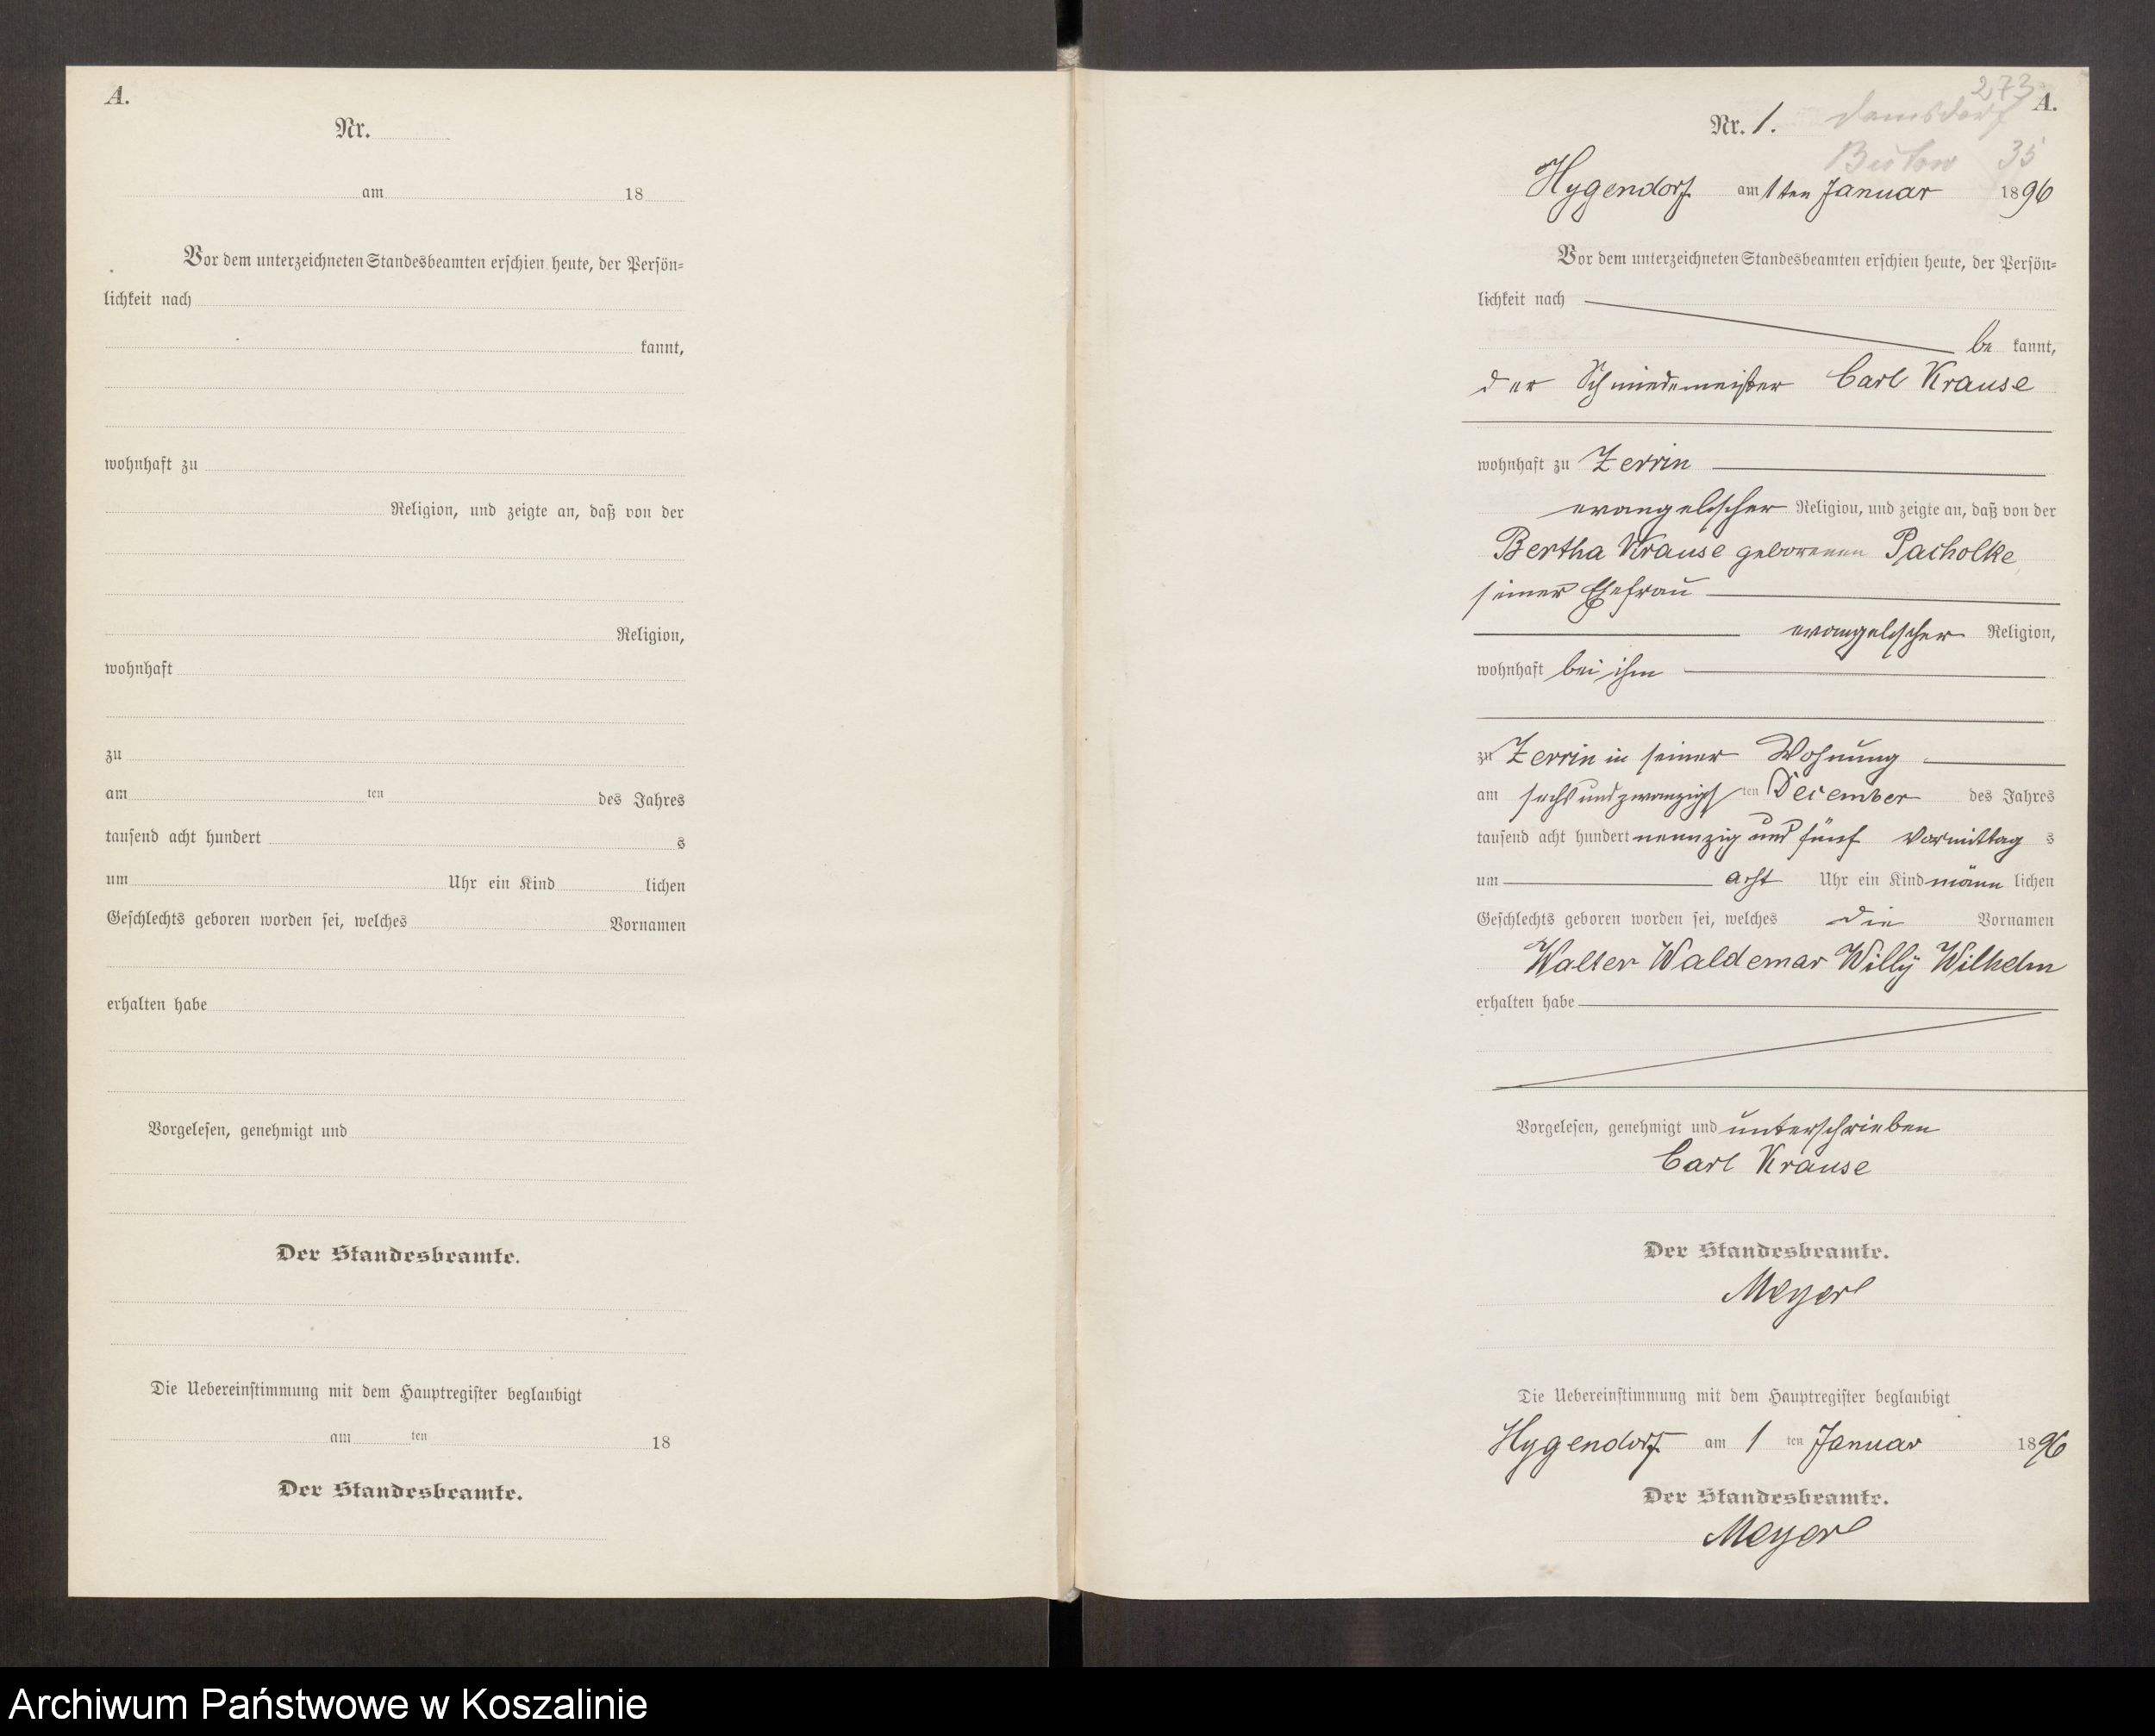 A.
Nr.
am 18
Vor dem unterzeichneten Standesbeamten erschien heute, der Persön=
lichkeit nach
kannt,
wohnhaft zu
Religion, und zeigte an, daß von der
Religion,
wohnhaft
zu
am ten des Jahres
tausend acht hundert s
um Uhr ein Kind lichen
Geschlechts geboren worden sei, welches Vornamen
erhalten habe
Vorgelesen, genehmigt und
Der Standesbeamte.
Die Uebereinstimmung mit dem Hauptregister beglaubigt
am ten 18
Der Standesbeamte.
273
A.
Nr. 1. Damsdorf
Butow 35
Hygendorf am 1ten Januar 1896
Vor dem unterzeichneten Standesbeamten erschien heute, der Persön=
lichkeit nach
be kannt,
der Schmiedemeister Carl Krause
wohnhaft zu Zerrin
evangelischer Religion, und zeigte an, daß von der
Bertha Krause geborenen Pacholke
seiner Ehefrau
evangelischer Religion,
wohnhaft bei ihm
zu Zerrin in seiner Wohnung
am sechsundzwanzigst ten December des Jahres
tausend acht hundert neunzig und fünf Vormittag s
um acht Uhr ein Kind männ lichen
Geschlechts geboren worden sei, welches die Vornamen
Walter Waldemar Willÿ Wilhelm
erhalten habe
Vorgelesen, genehmigt und unterschrieben
Carl Krause
Der Standesbeamte.
Meyer
Die Uebereinstimmung mit dem Hauptregister beglaubigt
Hygendorf am 1 ten Januar 1896
Der Standesbeamte.
Meyer
Archiwum Państwowe w Koszalinie